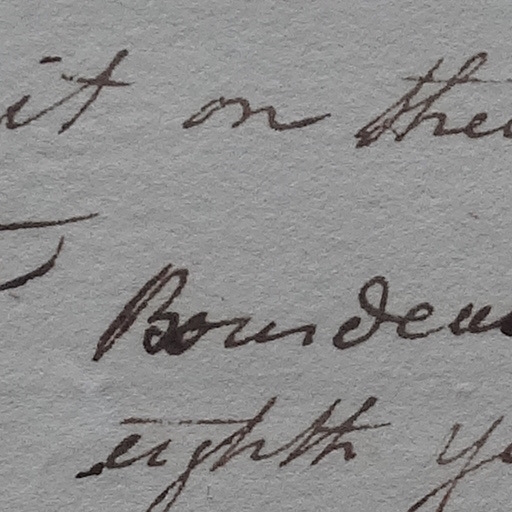 it on the
Bourdeau
eighth